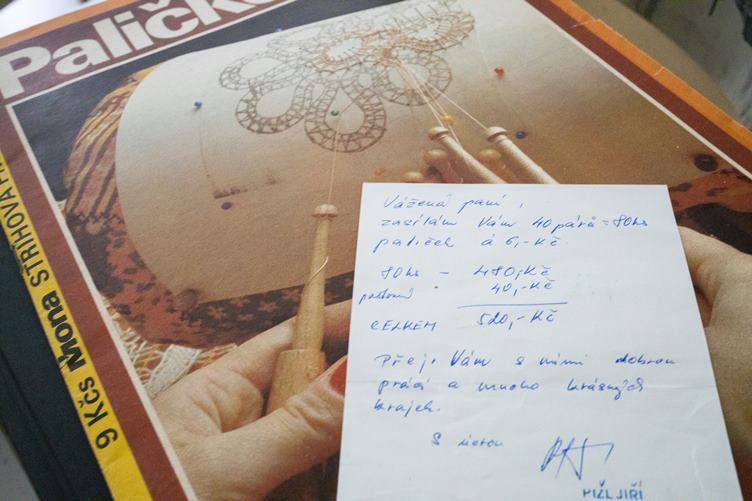 Paličko
9 Kčs Mona STŘIHOVÁ
Vážená paní,
zasílám Vám 40 párů = 80ks
paliček á 6,- Kč
80ks - 480,- Kč
poštovné 40,- Kč
CELKEM 520,- Kč
Přeji Vám s nimi dobrou
práci a mnoho krásných
krajek.
S úctou
PIŽL JIŘÍ